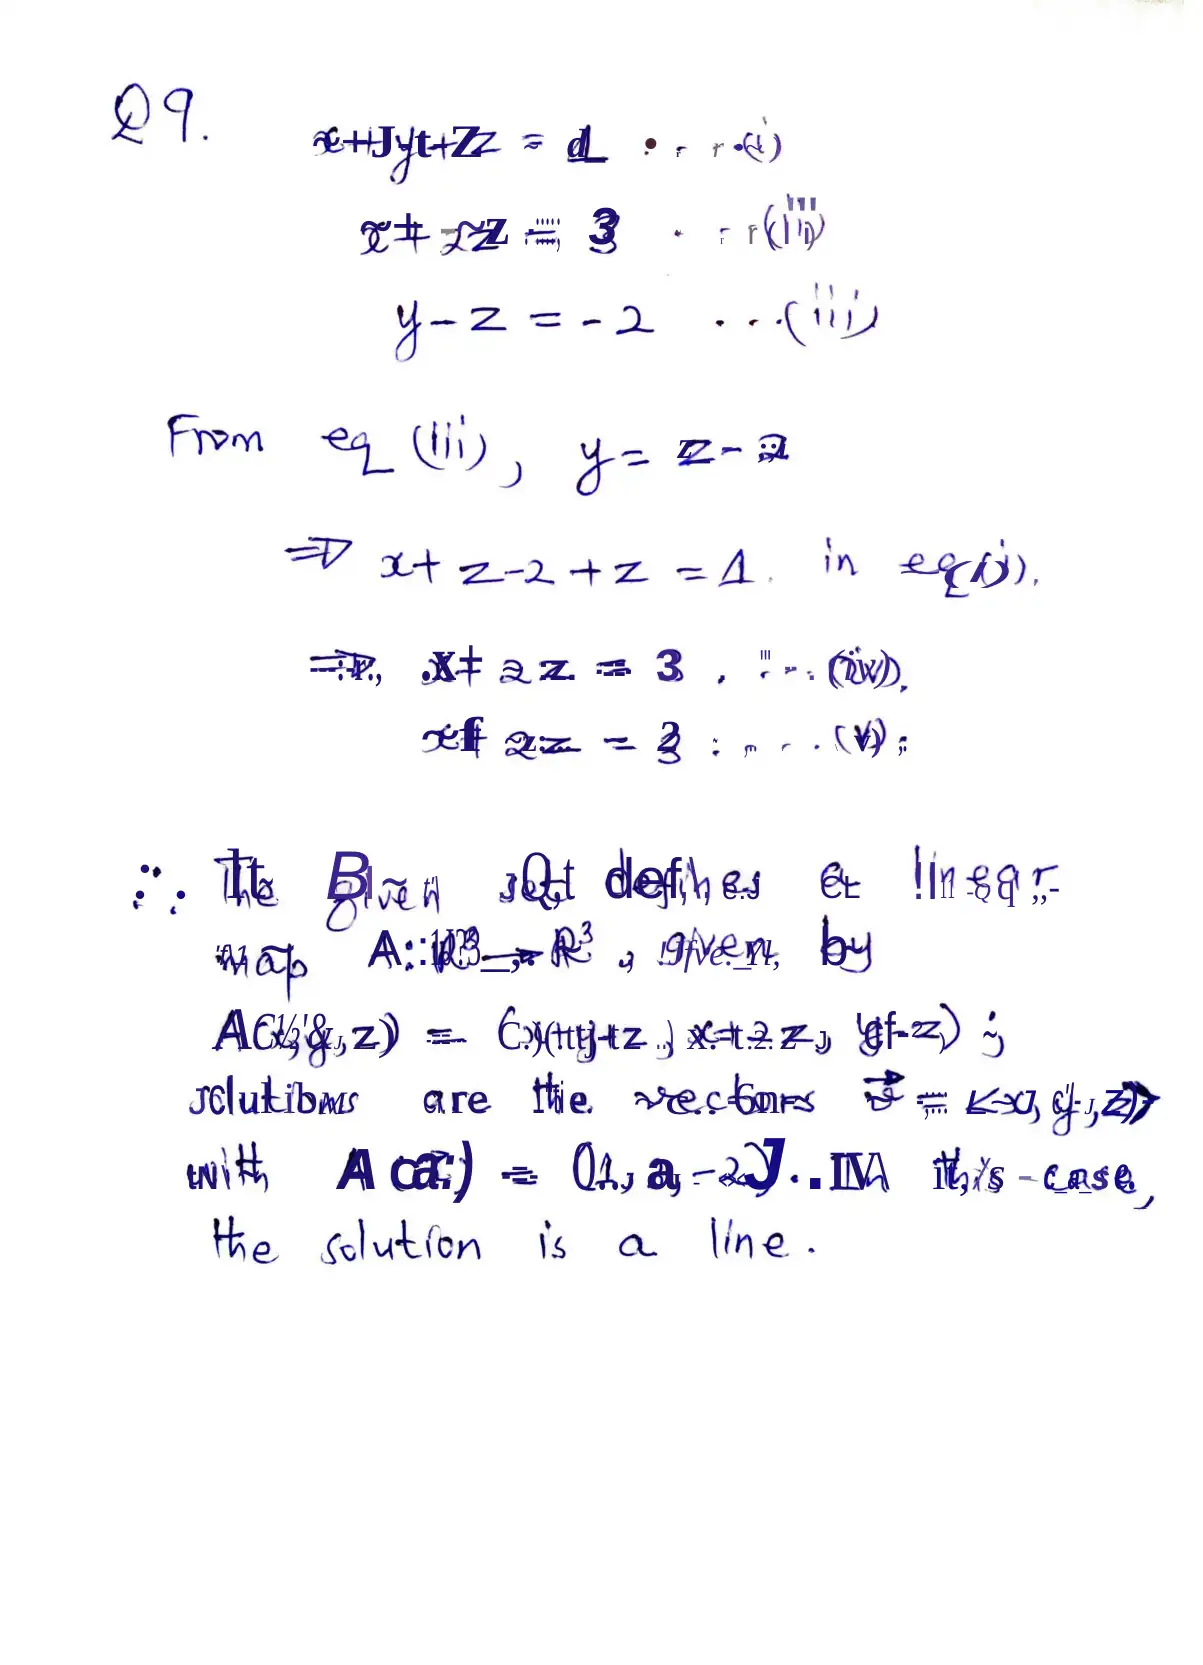 Q9. x+y+z = 1 ... (i)
x+2z = 3 ... (ii)
y-z = -2 ... (iii)
From eq (iii), y = z-2
⇒ x+z-2+z = 1. in eq(i).
⇒ x+2z = 3 . ... (iv).
x+2z = 3 : ... (v);
∴ The given set defines a linear
map A: ℝ³ → ℝ³, given by
A(x,y,z) = (x+y+z, x+2z, y-z);
solutions are the vectors v = <x,y,z>
with = (1, 3, -2). In this case,
the solution is a line.